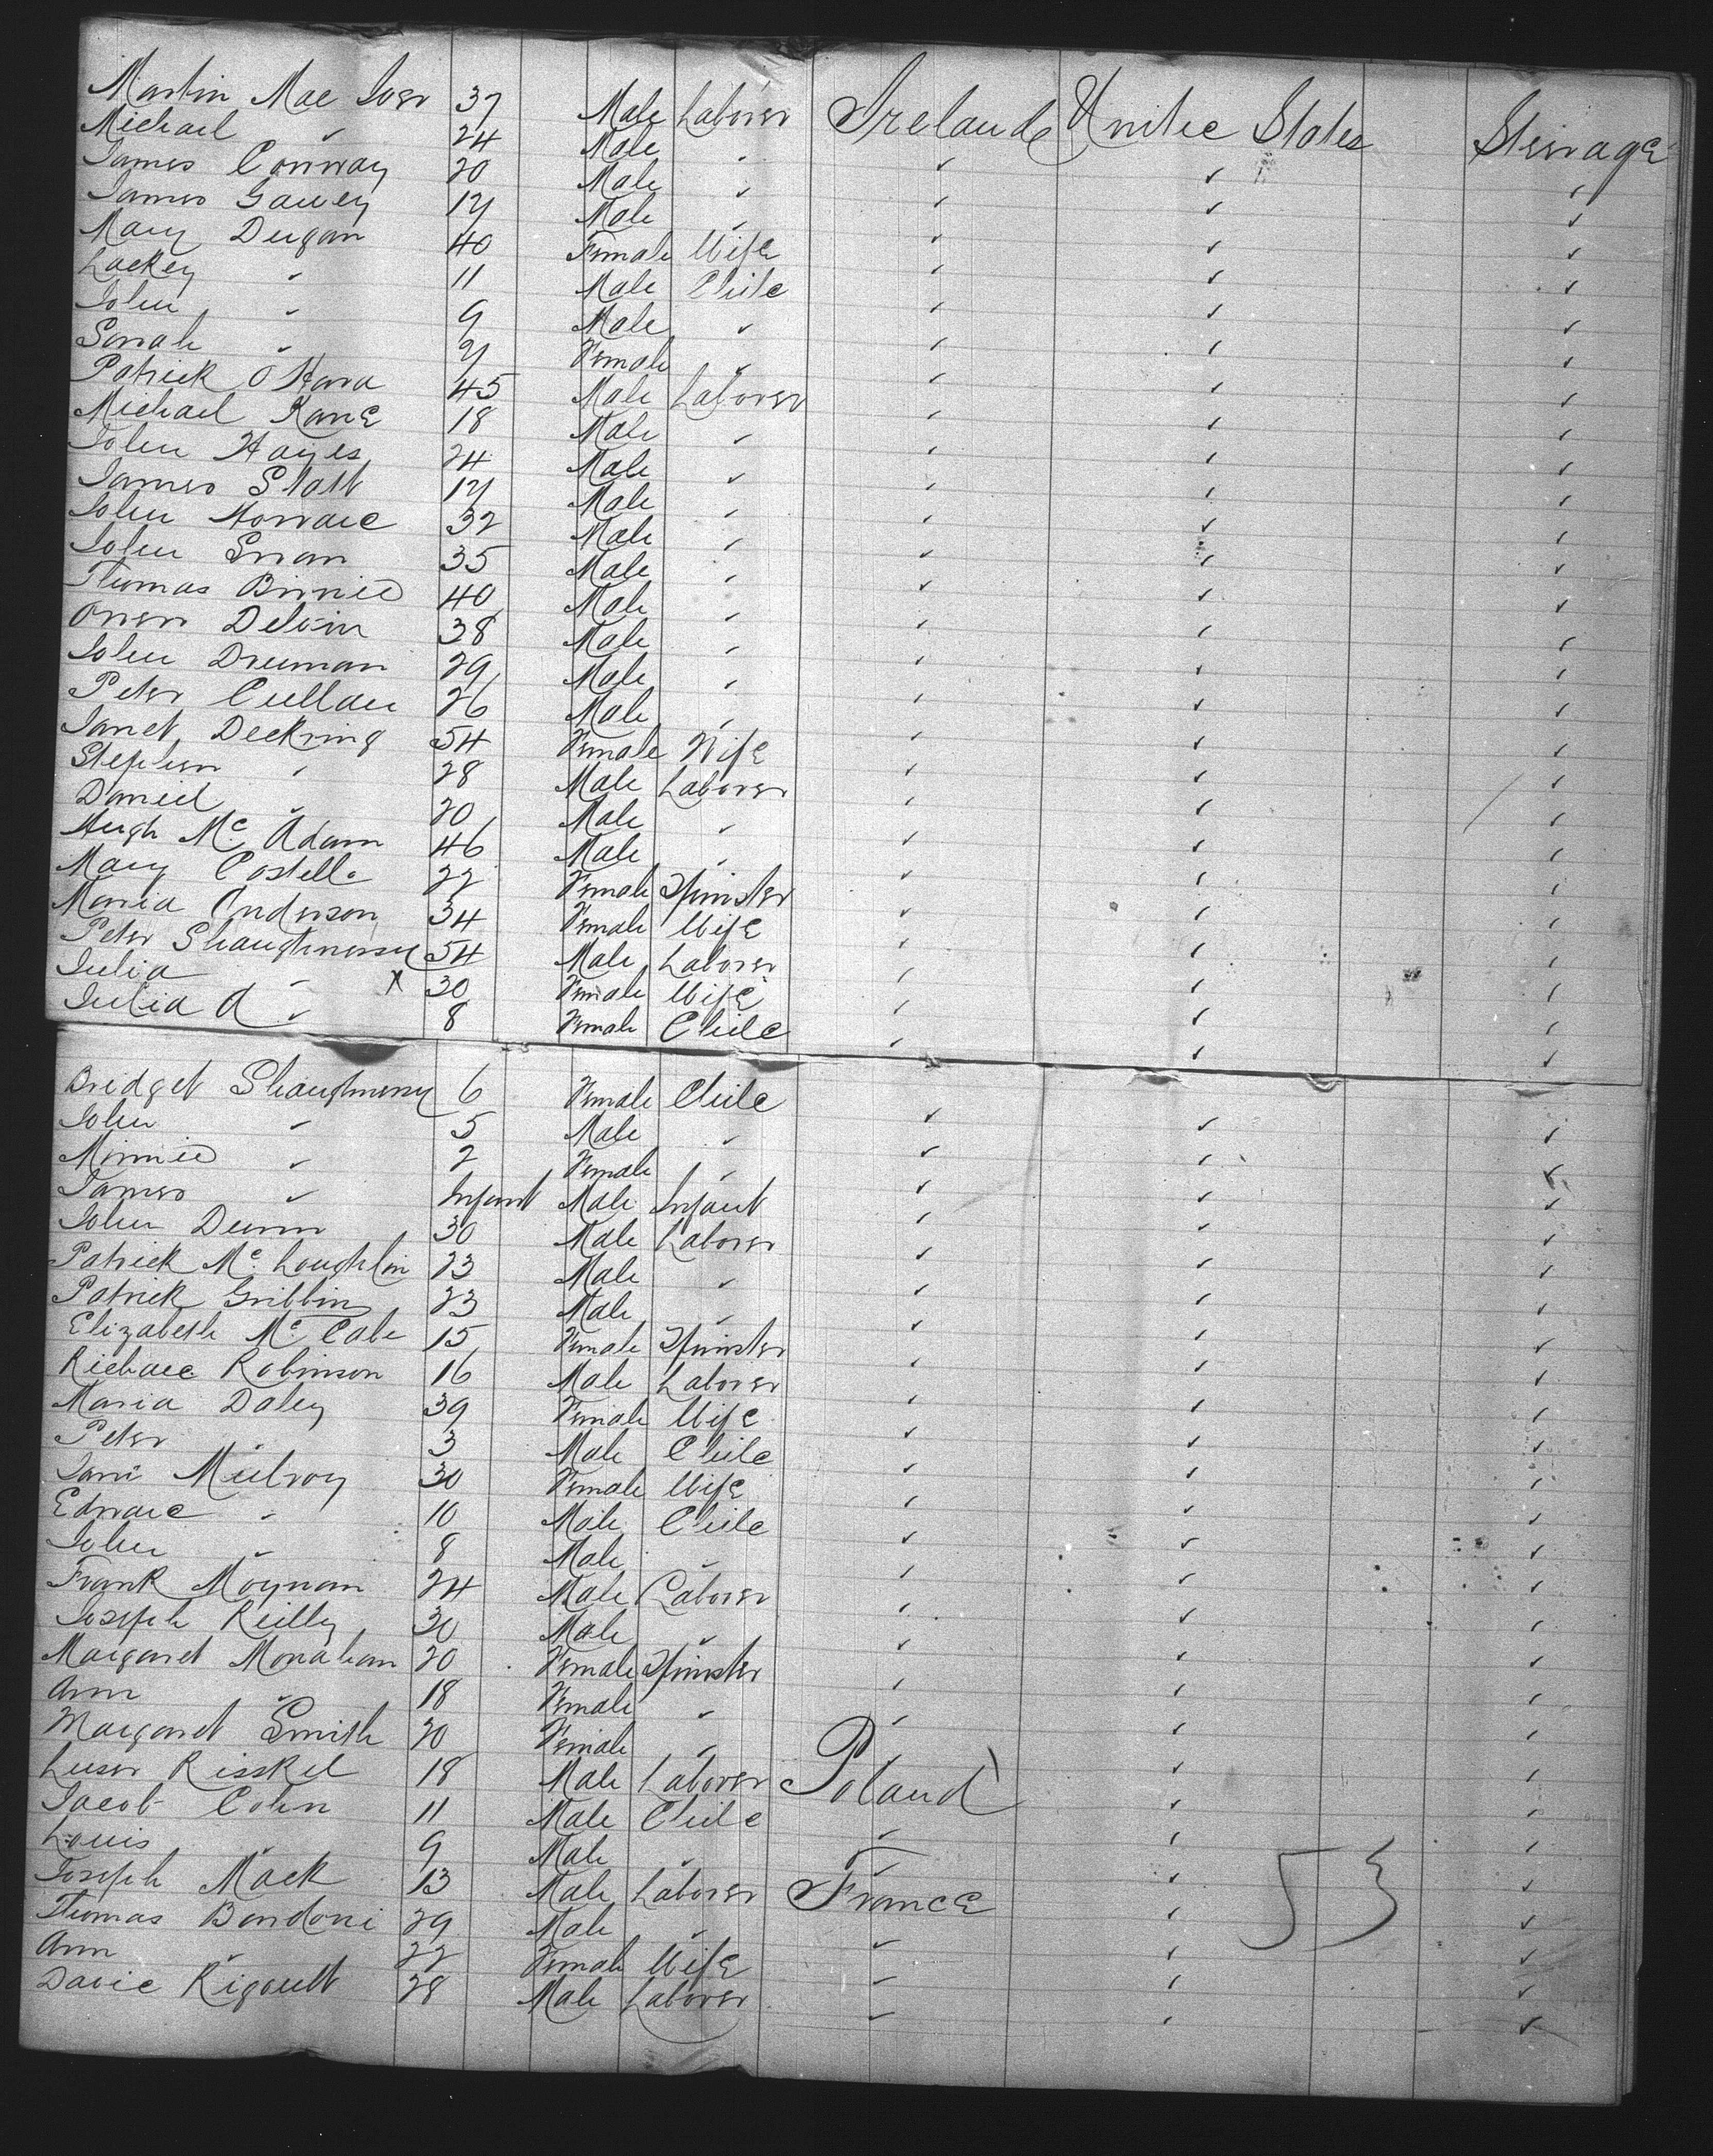 Martin Mac Iver 37 Male Laborer Ireland United States Steerage
Michael " 24 Male " " " "
James Conway 20 Male " " " "
James Garvey 17 Male " " " "
Mary Dugan 40 Female Wife " " "
Lackey " 11 Male Child " " "
John " 9 Male " " " "
Sarah " 7 Female " " " "
Patrick O'Hara 45 Male Laborer " " "
Michael Kane 18 Male " " " "
John Hayes 24 Male " " " "
James Slatt 17 Male " " " "
John Howard 32 Male " " " "
John Swan 35 Male " " " "
Thomas Binnie 40 Male " " " "
Owen Delvin 38 Male " " " "
John Druman 29 Male " " " "
Peter Cullan 26 Male " " " "
Janet Deekring 54 Female Wife " " "
Stephen " 28 Male Laborer " " "
Daniel " 20 Male " " " "
Hugh Mc Adam 46 Male " " " "
Mary Costello 22 Female Spinster " " "
Maria Anderson 34 Female Wife " " "
Peter Shaughnessy 54 Male Laborer " " "
Julia " X 30 Female Wife " " "
Julia A " 8 Female Child " " "
Bridget Shaughnessy 6 Female Child " " "
John " 5 Male " " " "
Minnie " 2 Female " " " "
James " Infant Male Infant " " "
John Dunn 30 Male Laborer " " "
Patrick Mc Loughlin 23 Male " " " "
Patrick Gribbin 23 Male " " " "
Elizabeth Mc Cabe 15 Female Spinster " " "
Richard Robinson 16 Male Laborer " " "
Maria Daley 39 Female Wife " " "
Peter " 3 Male Child " " "
Jane Mulroy 30 Female Wife " " "
Edward " 10 Male Child " " "
John " 8 Male " " " "
Frank Moynan 24 Male Laborer " " "
Joseph Reilly 30 Male " " " "
Margaret Monahan 20 Female Spinster " " "
Ann " 18 Female " " " "
Margaret Smith 20 Female " " " "
Luser Risskel 18 Male Laborer Poland " "
Jacob Cohn 11 Male Child " " "
Louis " 9 Male " " " "
Joseph Mack 13 Male Laborer France " "
Thomas Bondoni 29 Male " " " "
Ann " 22 Female Wife " " "
David Rigault 28 Male Laborer " " "
53